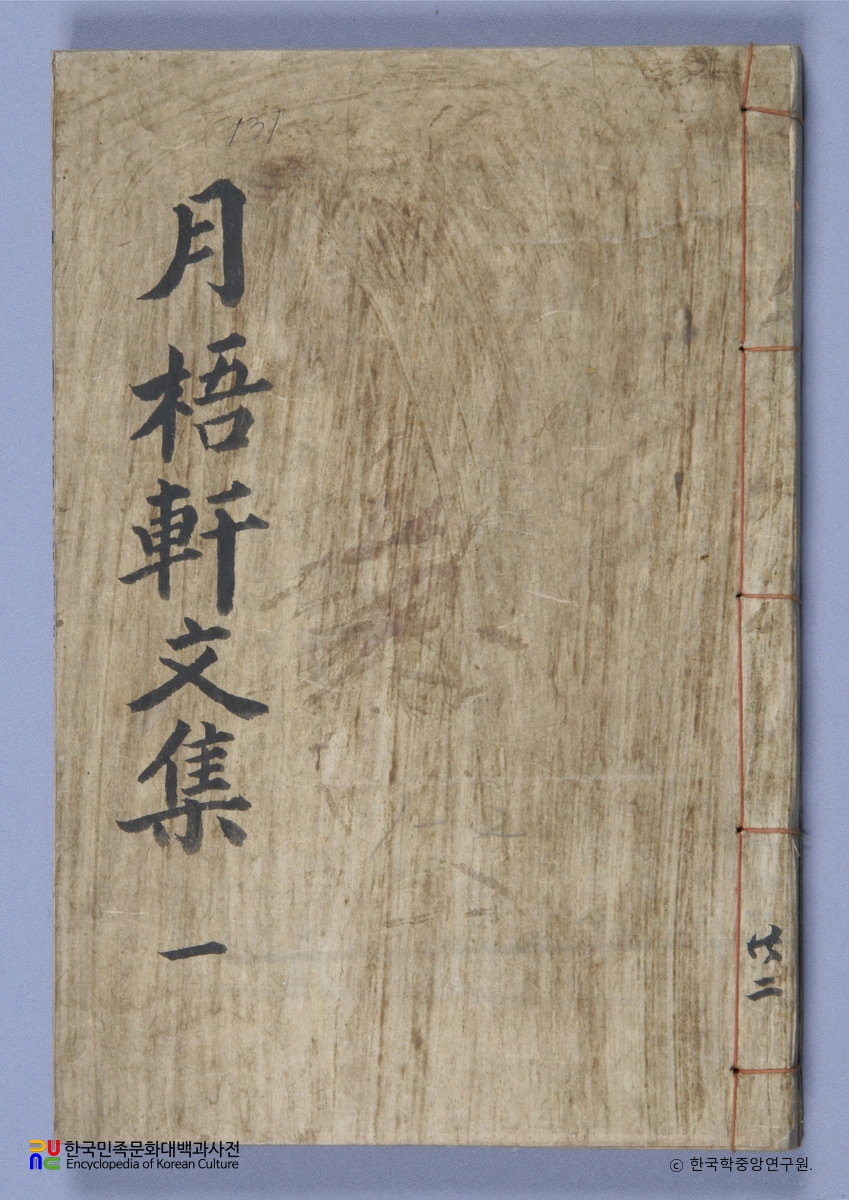 131
月梧軒文集 一
共二
한국민족문화대백과사전
Encyclopedia of Korean Culture
ⓒ 한국학중앙연구원.